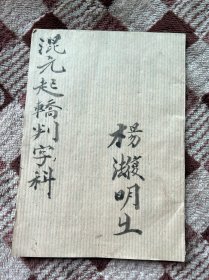 混元起橋判字科
楊濲明土